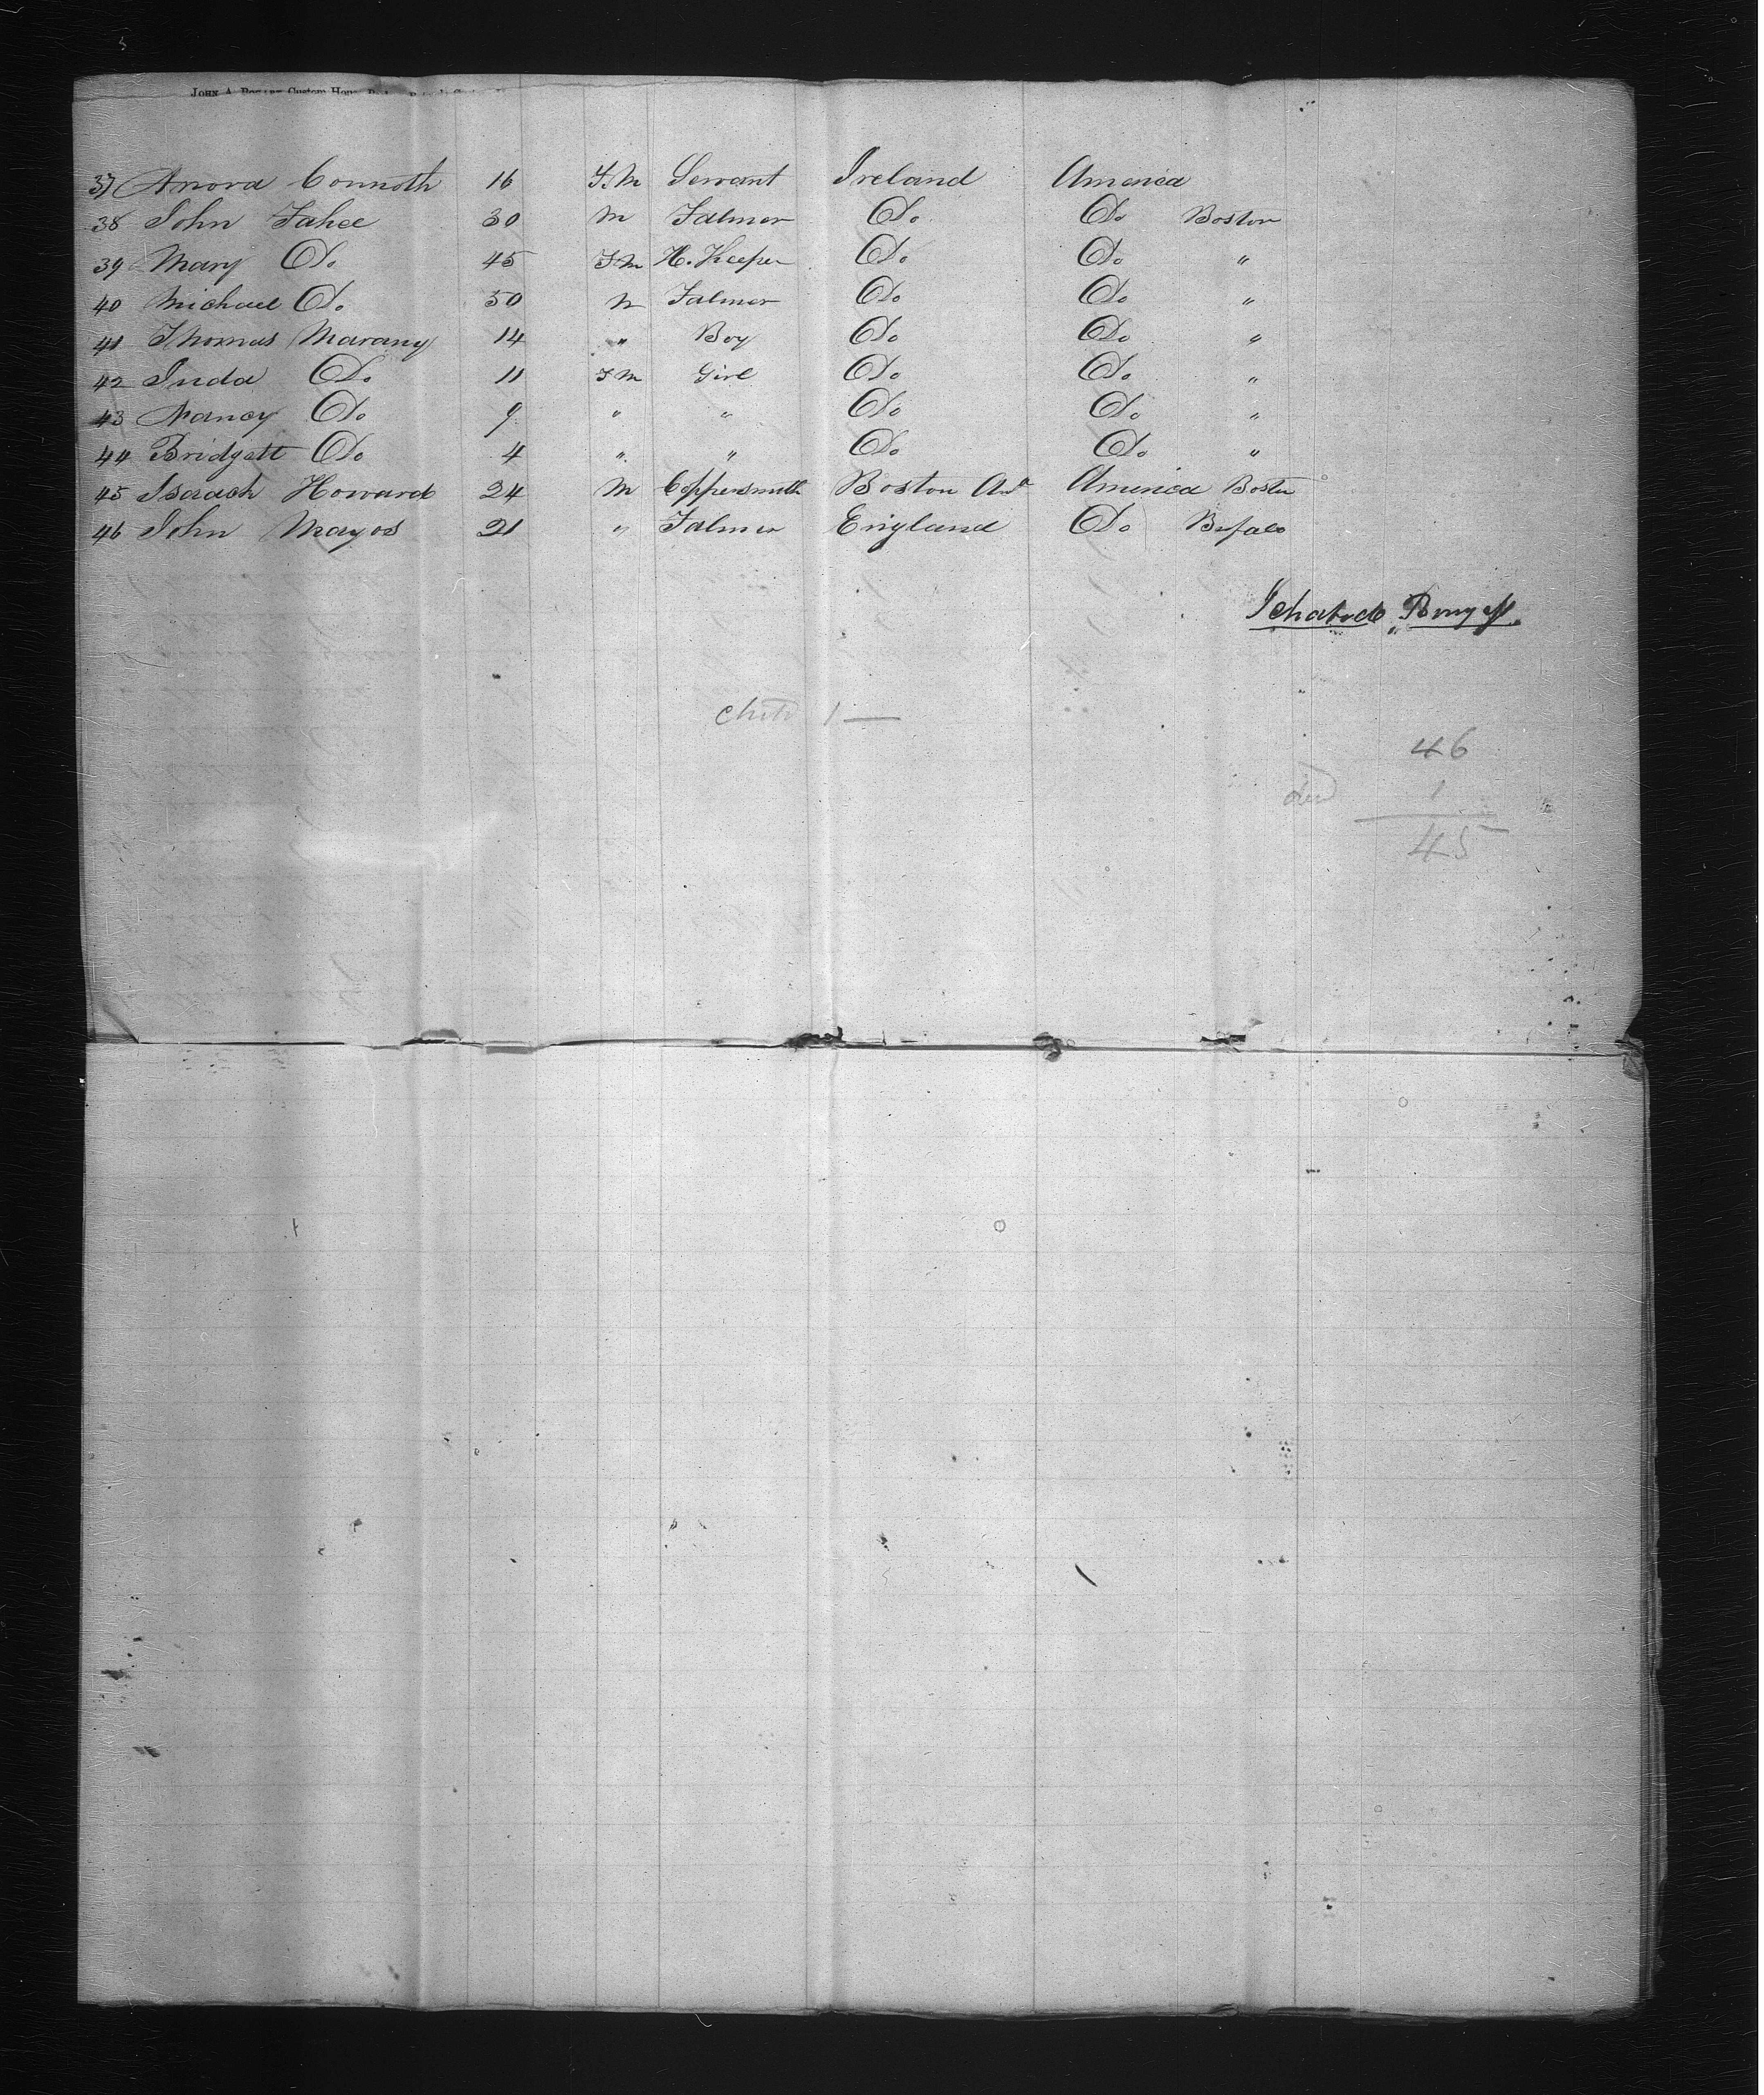 JOHN A. BOGART Custom House
37 Anora Connoth 16 F.M Servant Ireland America
38 John Fahee 30 M Falmer Do. Do Boston
39 Mary Do. 45 F.M H. Keeper Do. Do. "
40 Michael Do. 50 M Falmer Do Do. "
41 Thomas Marany 14 " Boy Do Do. "
42 Inda Do. 11 F M Girl Do Do. "
43 Nancy Do 9 " " Do Do. "
44 Bridgett Do 4 " " Do. Do. "
45 Isaach Howard 24 M Coppersmith Boston America Boston
46 John Mayos 21 " Falmer England Do. Bufalo
Ichabod
child 1 —
46
1
45